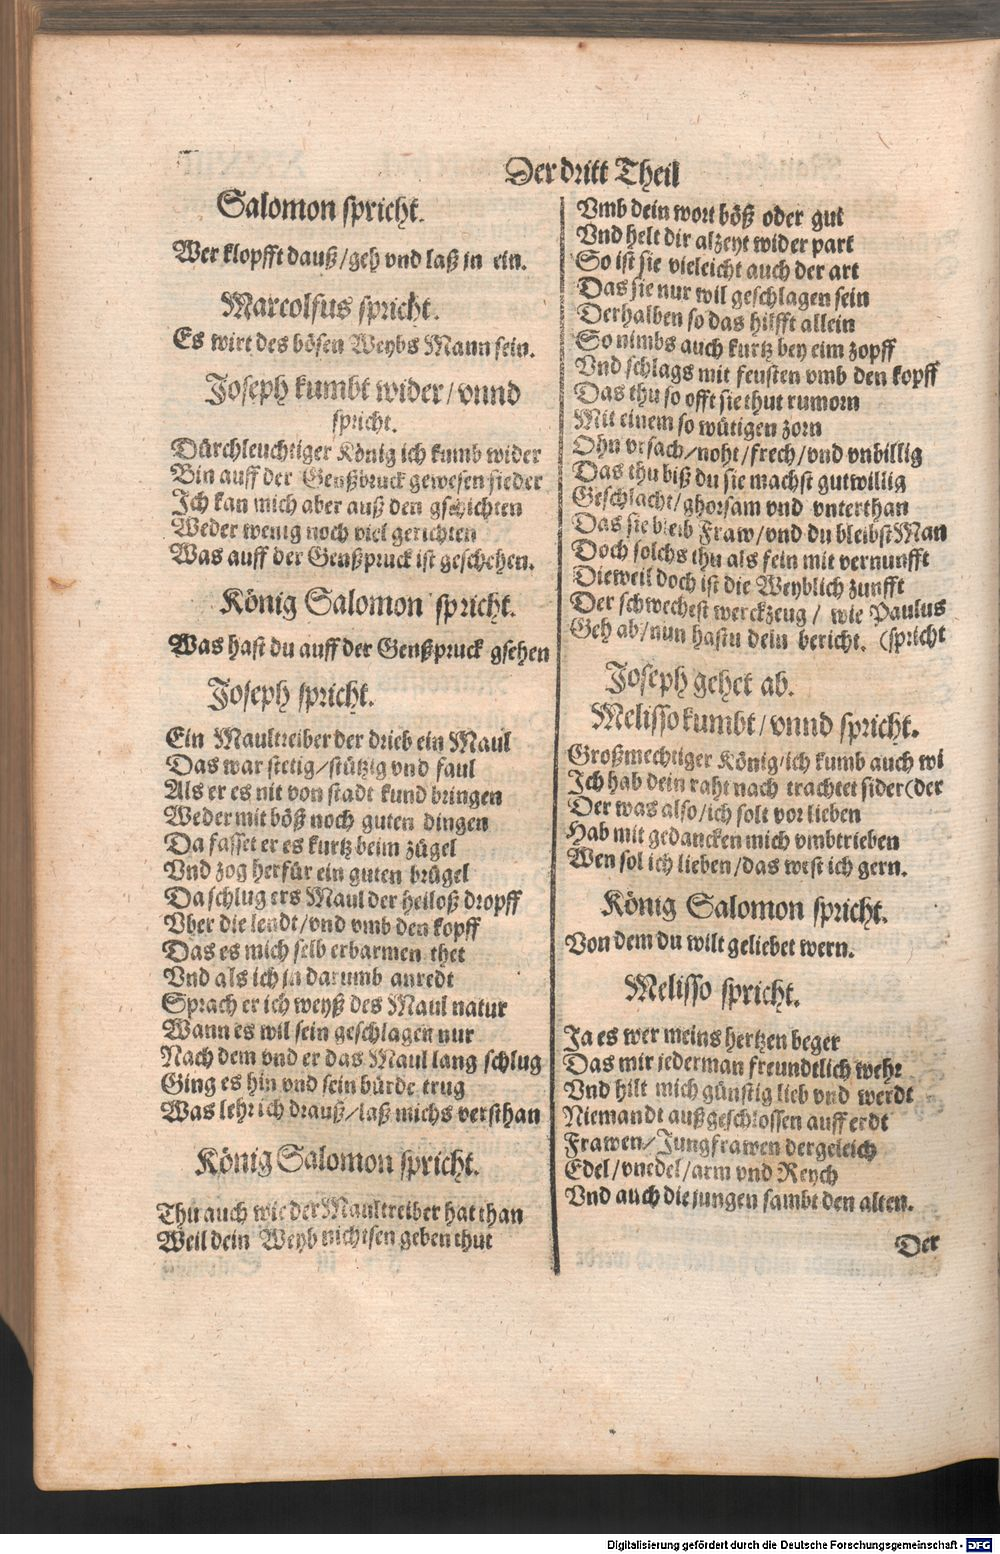 Der dritt Theil
Salomon spricht.
Wer klopfft dauß/geh vnd laß jn ein.
Marcolfus spricht.
Es wirt des bösen Weybs Mann sein.
Joseph kumbt wider/vnnd
spricht.
Dürchleuchtiger König ich kumb wider
Bin auff der Genßbruck gewesen sieder
Ich kan mich aber auß den gschichten
Weder wenig noch viel gerichten
Was auff der Genßpruck ist geschehen.
König Salomon spricht.
Was hast du auff der Genßpruck gsehen
Joseph spricht.
Ein Maultreiber der drieb ein Maul
Das war stetig/stützig vnd faul
Als er es nit von stadt kund bringen
Weder mit böß noch guten dingen
Da fasset er es kurtz beim zügel
Vnd zog herfür ein guten brügel
Da schlug ers Maul der heiloß dropff
Vber die lendt/vnd vmb den kopff
Das es mich selb erbarmen thet
Vnd als ich jn darumb anredt
Sprach er ich weyß des Maul natur
Wann es wil sein geschlagen nur
Nach dem vnd er das Maul lang schlug
Ging es hin vnd sein bürde trug
Was lehr ich drauß/laß michs versthan
König Salomon spricht.
Thu auch wie der Maultreiber hat than
Weil dein Weyb nichtsen geben thut
Vmb dein wort böß oder gut
Vnd helt dir alzeyt wider part
So ist sie vieleicht auch der art
Das sie nur wil geschlagen sein
Derhalben so das hilfft allein
So nimbs auch kurtz bey eim zopff
Vnd schlags mit feusten vmb den kopff
Das thu so offt sie thut rumorn
Mit einem so wütigen zorn
Ohn vrsach/noht/frech/vnd vnbillig
Das thu biß du sie machst gutwillig
Geschlacht/ghorsam vnd vnterthan
Das sie bleib Fraw/vnd du bleibst Man
Doch solchs thu als fein mit vernunfft
Dieweil doch ist die Weyblich zunfft
Der schwechest werckzeug/ wie Paulus
Geh ab/nun hastu dein bericht. (spricht
Joseph gehet ab.
Melisso kumbt/vnnd spricht.
Großmechtiger König/ich kumb auch wi
Ich hab dein raht nach trachtet sider(der
Der was also/ich solt vor lieben
Hab mit gedancken mich vmbtrieben
Wen sol ich lieben/das west ich gern.
König Salomon spricht.
Von dem du wilt geliebet wern.
Melisso spricht.
Ja es wer meins hertzen beger
Das mir jederman freundtlich wehr
Vnd hilt mich günstig lieb vnd werdt
Niemandt außgeschlossen auff erdt
Frawen/Jungfrawen dergeleich
Edel/vnedel/arm vnd Reych
Vnd auch die jungen sambt den alten.
Der
Digitalisierung gefördert durch die Deutsche Forschungsgemeinschaft - DFG